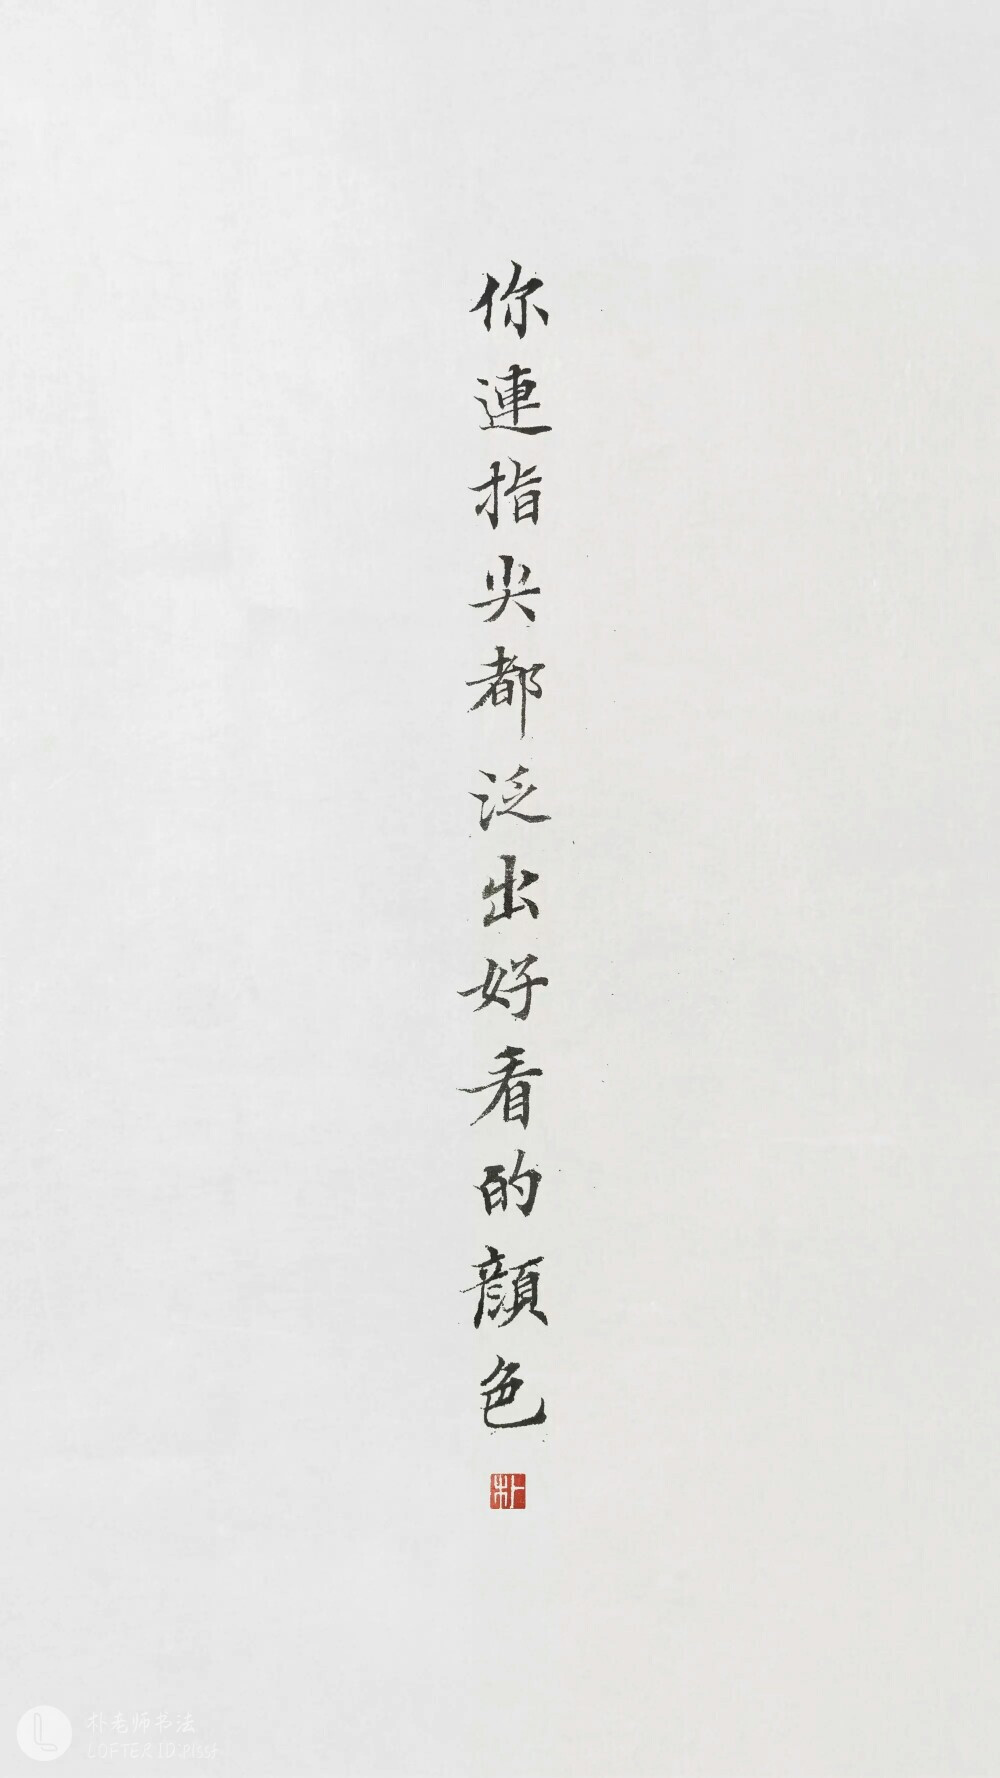 你連指尖都泛出好看的顔色
朴
朴老师书法
LOFTER ID:plssf